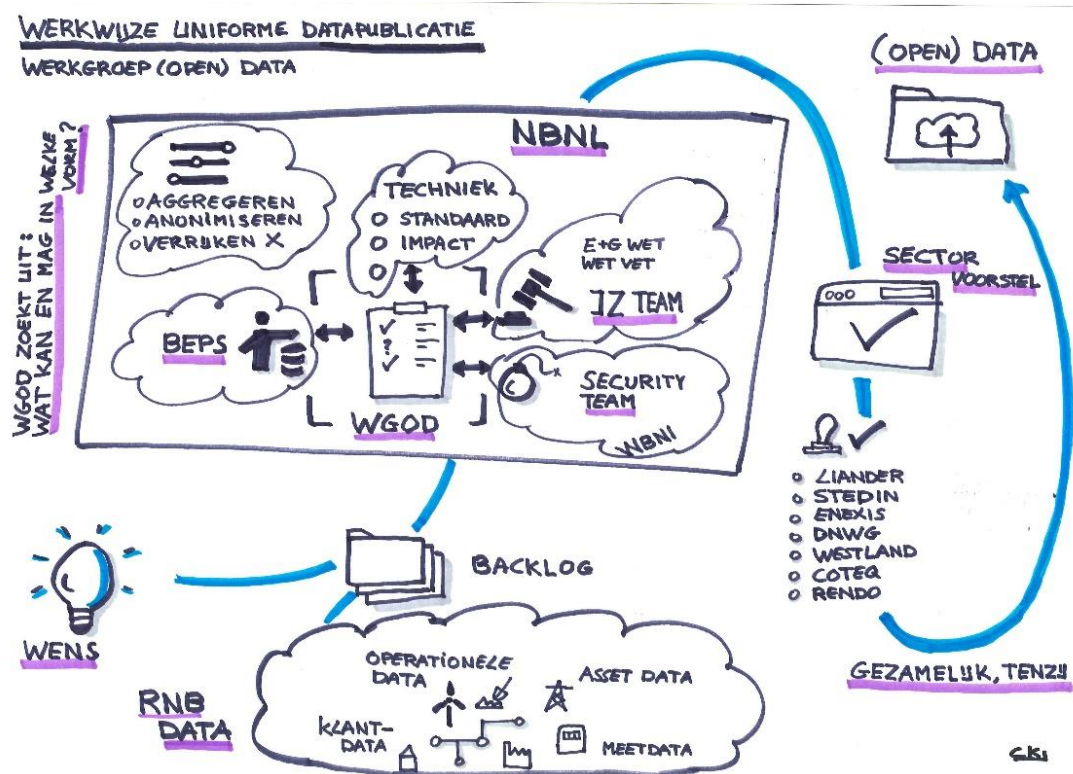 WERKWIJZE UNIFORME DATAPUBLICATIE
WERKGROEP (OPEN) DATA
WGOD ZOEKT UIT:
WAT KAN EN MAG IN WELKE
VORM?
NBNL
AGGREGEREN
ANONIMISEREN
VERRIJKEN X
TECHNIEK
STANDAARD
IMPACT
E+G WET
WET VET
JZ TEAM
BEPS
WGOD
SECURITY
TEAM
NBNl
(OPEN) DATA
SECTOR
VOORSTEL
LIANDER
STEDIN
ENEXIS
DNWG
WESTLAND
COTEQ
RENDO
GEZAMELIJK, TENZIJ
WENS
BACKLOG
RNB
DATA
OPERATIONELE
DATA
ASSET DATA
KLANT-
DATA
MEETDATA